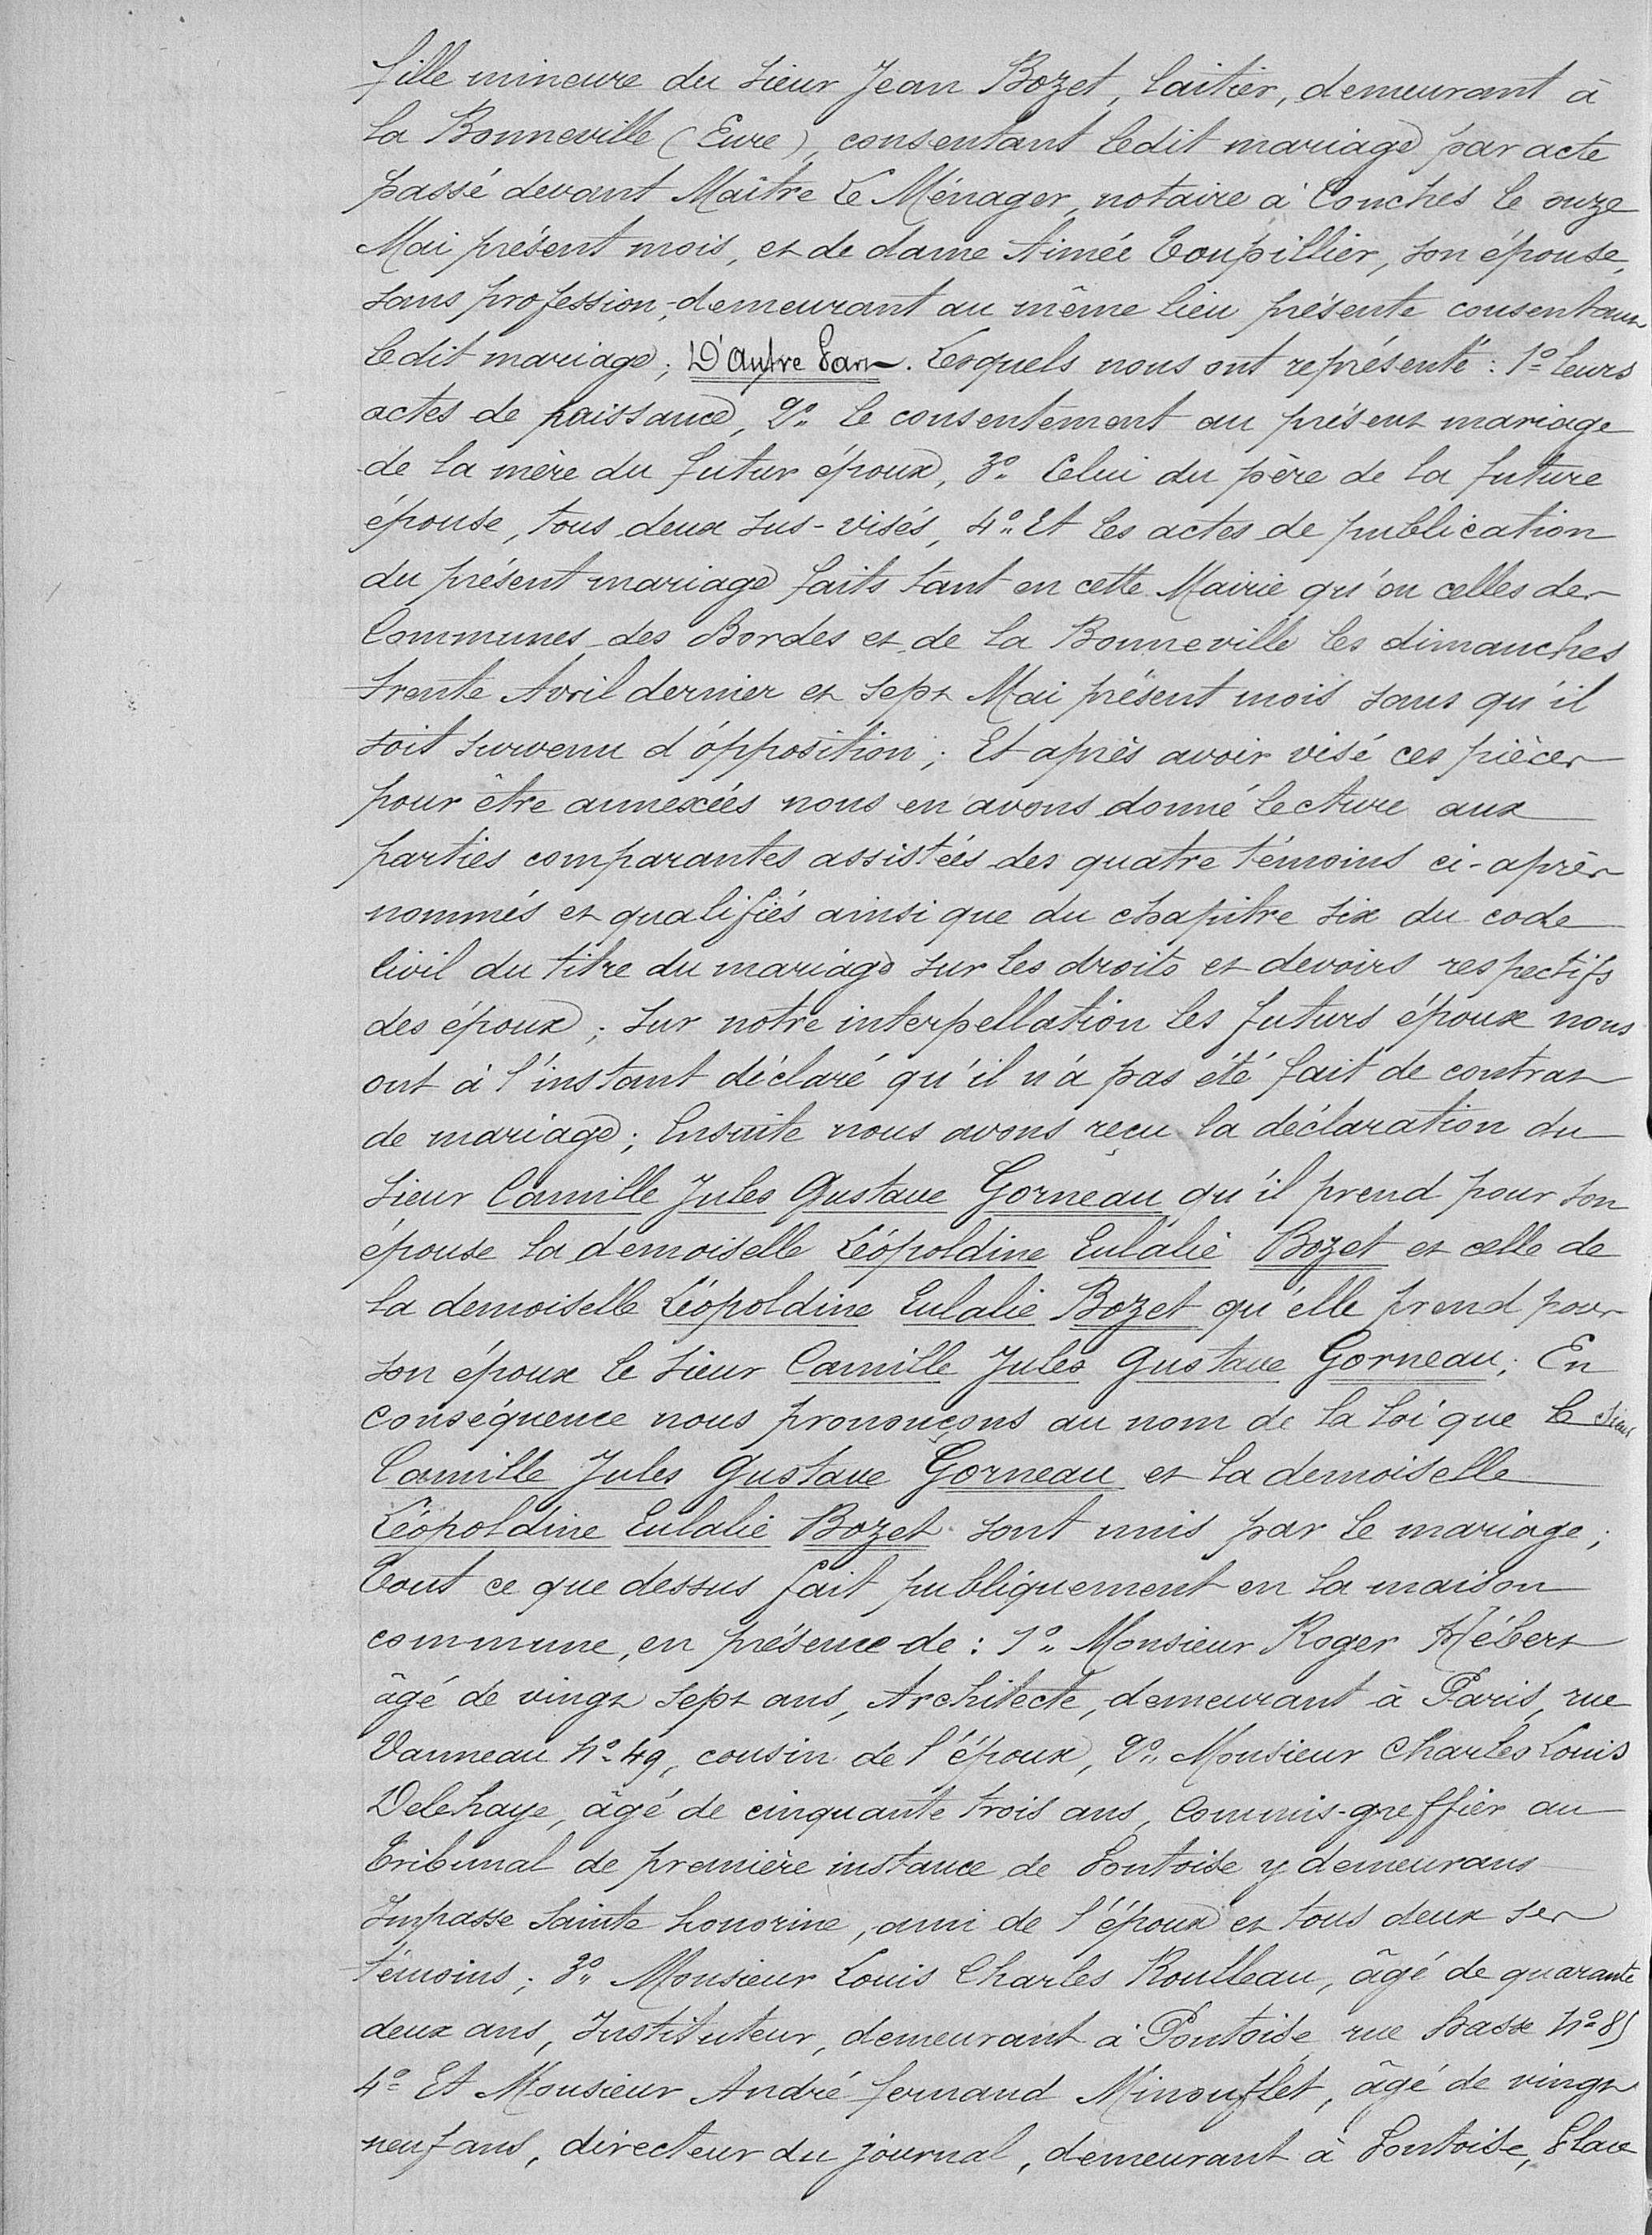 fille mineure du sieur Jean Bozet, laitier, demeurant à
la Bonneville (Eure), consentant ledit mariage par acte
passé devant Maître Le Ménager, notaire à Conches le onze
Mai présent mois, et de dame Aimée Toupillier, son épouse,
sans profession, demeurant au même lieu présente consentant
ledit mariage; D'Autre Part. Lesquels nous ont représenté: 1º leurs
actes de naissance, 2º le consentement au présent mariage
de la mère du futur époux, 3º Celui du père de la future
épouse, tous deux sus-visés, 4º Et les actes de publication
du présent mariage faits tant en cette Mairie qu'en celles des
Communes des Bordes et de la Bonneville les dimanches
trente Avril dernier et sept Mai présent mois sans qu'il
soit survenu d'opposition; Et après avoir visé ces pièces
pour être annexées nous en avons donné lecture aux
parties comparantes assistées des quatre témoins ci-après
nommés et qualifiés ainsi que du chapitre six du code
Civil du titre du mariage sur les droits et devoirs respectifs
des époux; Sur notre interpellation les futurs époux nous
ont à l'instant déclaré qu'il n'a pas été fait de contrat
de mariage; Ensuite nous avons reçu la déclaration du
sieur Camille Jules Gustave Gorneau qu'il prend pour son
épouse la demoiselle Léopoldine Eulalie Bozet et celle de
la demoiselle Léopoldine Eulalie Bozet qu'elle prend pour
son époux le sieur Camille Jules Gustave Gorneau; En
conséquence nous prononçons au nom de la loi que le sieur
Camille Jules Gustave Gorneau et la demoiselle
Léopoldine Eulalie Bozet sont unis par le mariage;
Tout ce que dessus fait publiquement en la maison
commune, en présence de: 1º Monsieur Roger Hébert
âgé de vingt sept ans, Architecte, demeurant à Paris, rue
Vanneau nº 49, cousin de l'époux, 2º Monsieur Charles Louis
Delehaye, âgé de cinquante trois ans, Commis-greffier au
Tribunal de première instance de Pontoise y demeurant
Impasse Sainte honorine, ami de l'époux et tous deux ses
témoins; 3º Monsieur Louis Charles Roulleau, âgé de quarante
deux ans, Instituteur, demeurant à Pontoise rue Basse nº 85
4º Et Monsieur André fernand Minouflet, âgé de vingt
neuf ans, directeur du journal, demeurant à Pontoise, Place